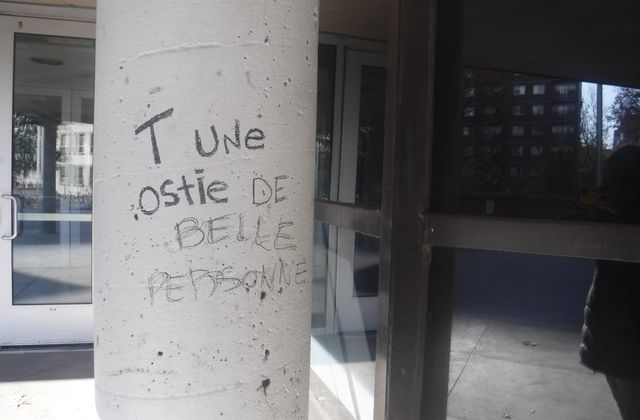 T UNe
ostie DE
BELLE
PERSONNE